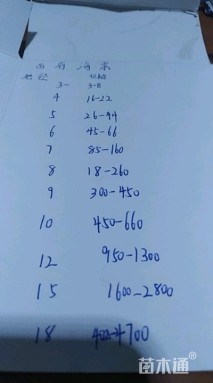 西府海棠
3- 3-8
4 16-22
5 26-94
6 45-66
7 85-160
8 18-260
9 300-450
10 450-660
12 950-1300
15 1600-2800
18 4700
苗木通